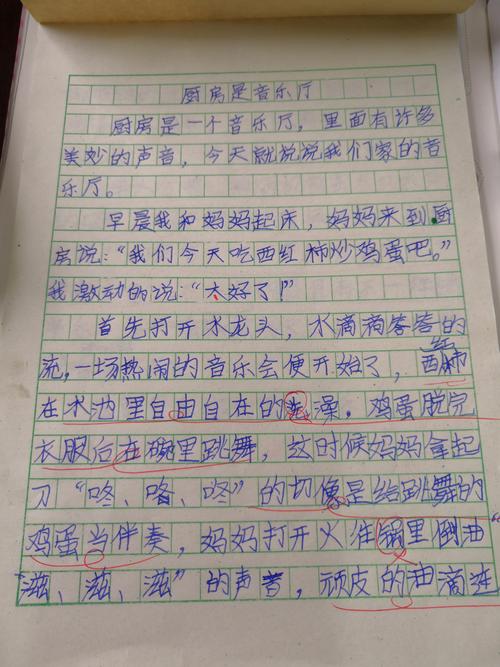 厨房是音乐厅
厨房是一个音乐厅，里面有许多
美妙的声音，今天就说说我们家的音
乐厅。
早晨我和妈妈起床，妈妈来到厨
房说：“我们今天吃西红柿炒鸡蛋吧。”
我激动的说：“太好了！”
首先打开水龙头，水滴滴答答的
流，一场热闹的音乐会便开始了，西红柿
在水池里自由自在的洗澡，鸡蛋脱完
衣服后在碗里跳舞，这时候妈妈拿起
刀“咚、咯、咚”的切像是给跳舞的
鸡蛋当伴奏，妈妈打开火往锅里倒油“
滋、滋、滋”的声音，顽皮的油滴迸